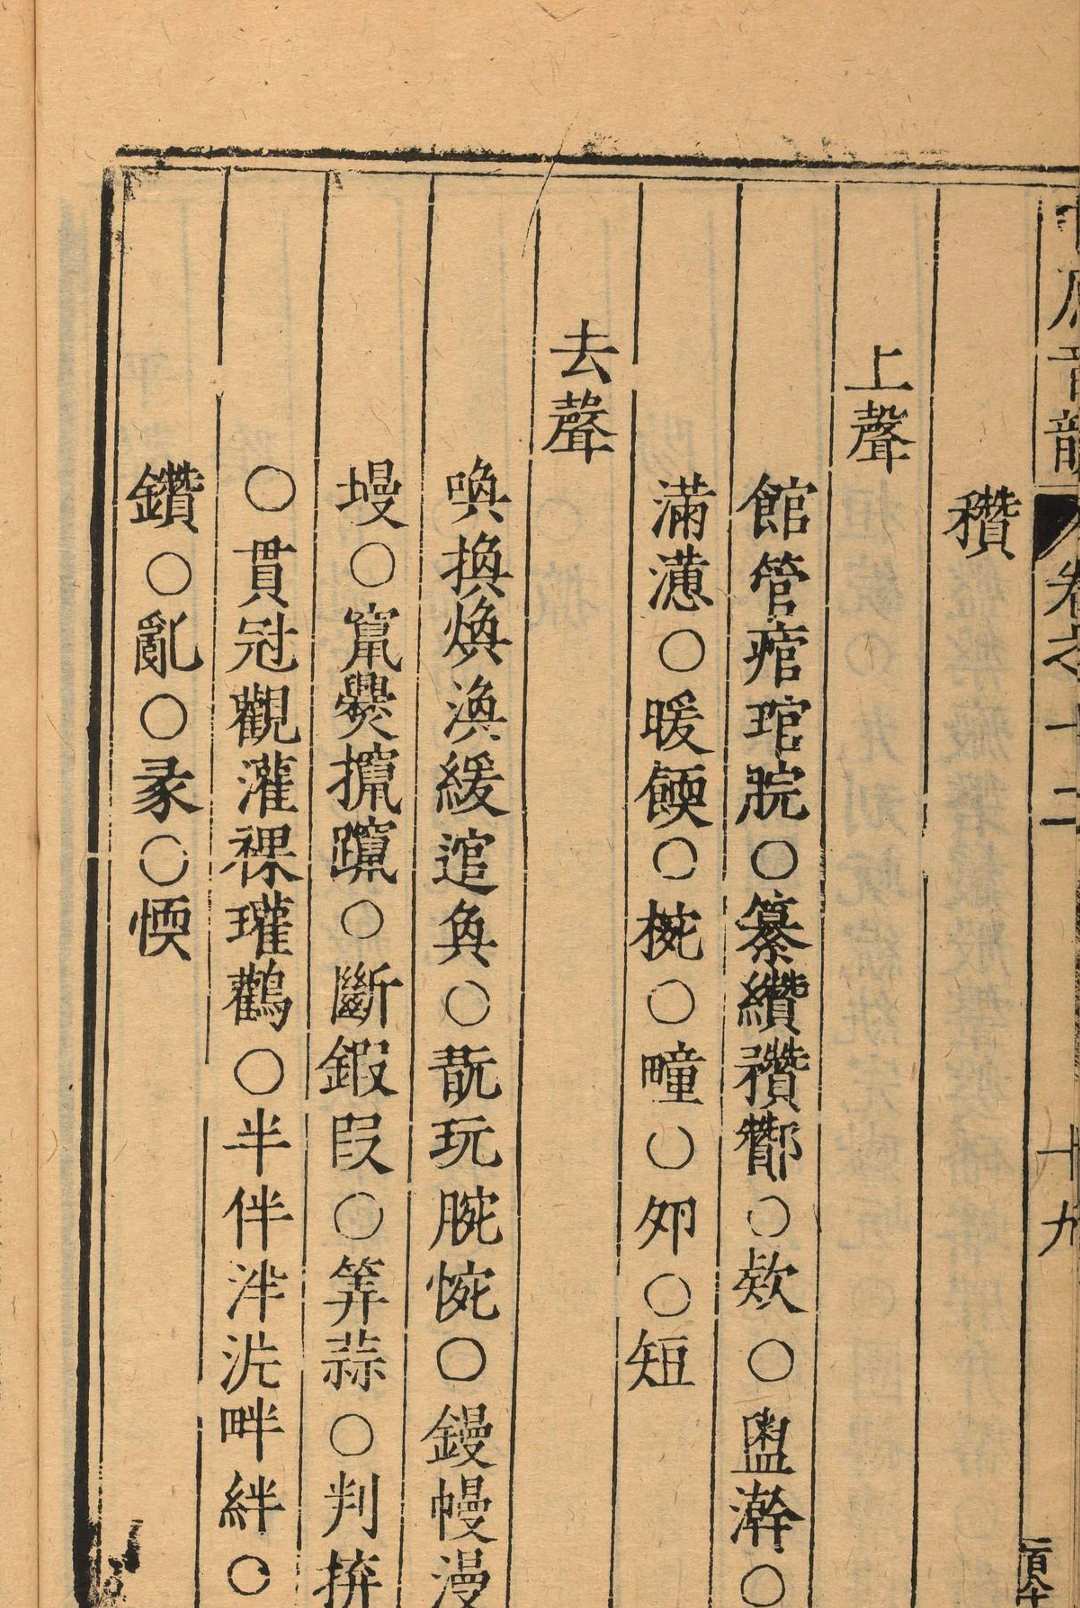 音韻 卷之十二 十九
穳
上聲
館管痯琯脘○纂纘䂎酇○欵○盥澣○
滿懣○暖餪○椀○疃○夘○短
去聲
喚換煥渙緩逭奐○翫玩腕惋○鏝幔漫
墁○竄爨攛躥○斷鍛段○筭蒜○判拚
○貫冠觀灌祼瓘鸛○半伴泮沜畔絆○
鑽○亂○彖○愞